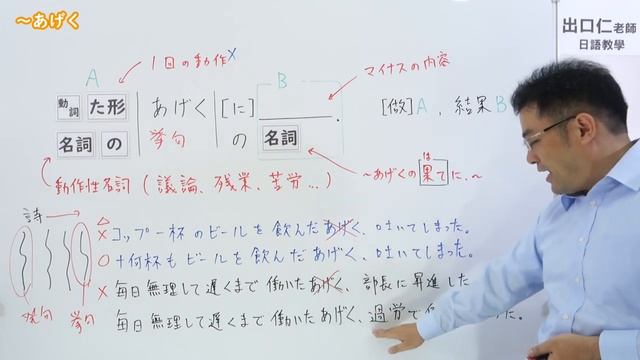 ～あげく
出口仁老師
日語教學
A
1回の動作×
B
マイナスの内容
動詞 た形 あげく [に] ＿＿＿.
[做]A、結果B
名詞 の 挙句 の 名詞
動作性名詞 (議論、残業、苦労…)
～あげくの果てに、～
は
詩→
△
×コップ一杯のビールを飲んだあげく、吐いてしまった。
○十何杯もビールを飲んだあげく、吐いてしまった。
×毎日無理して遅くまで働いたあげく、部長に昇進した
毎日無理して遅くまで働いたあげく、過労で
た。
発句 挙句